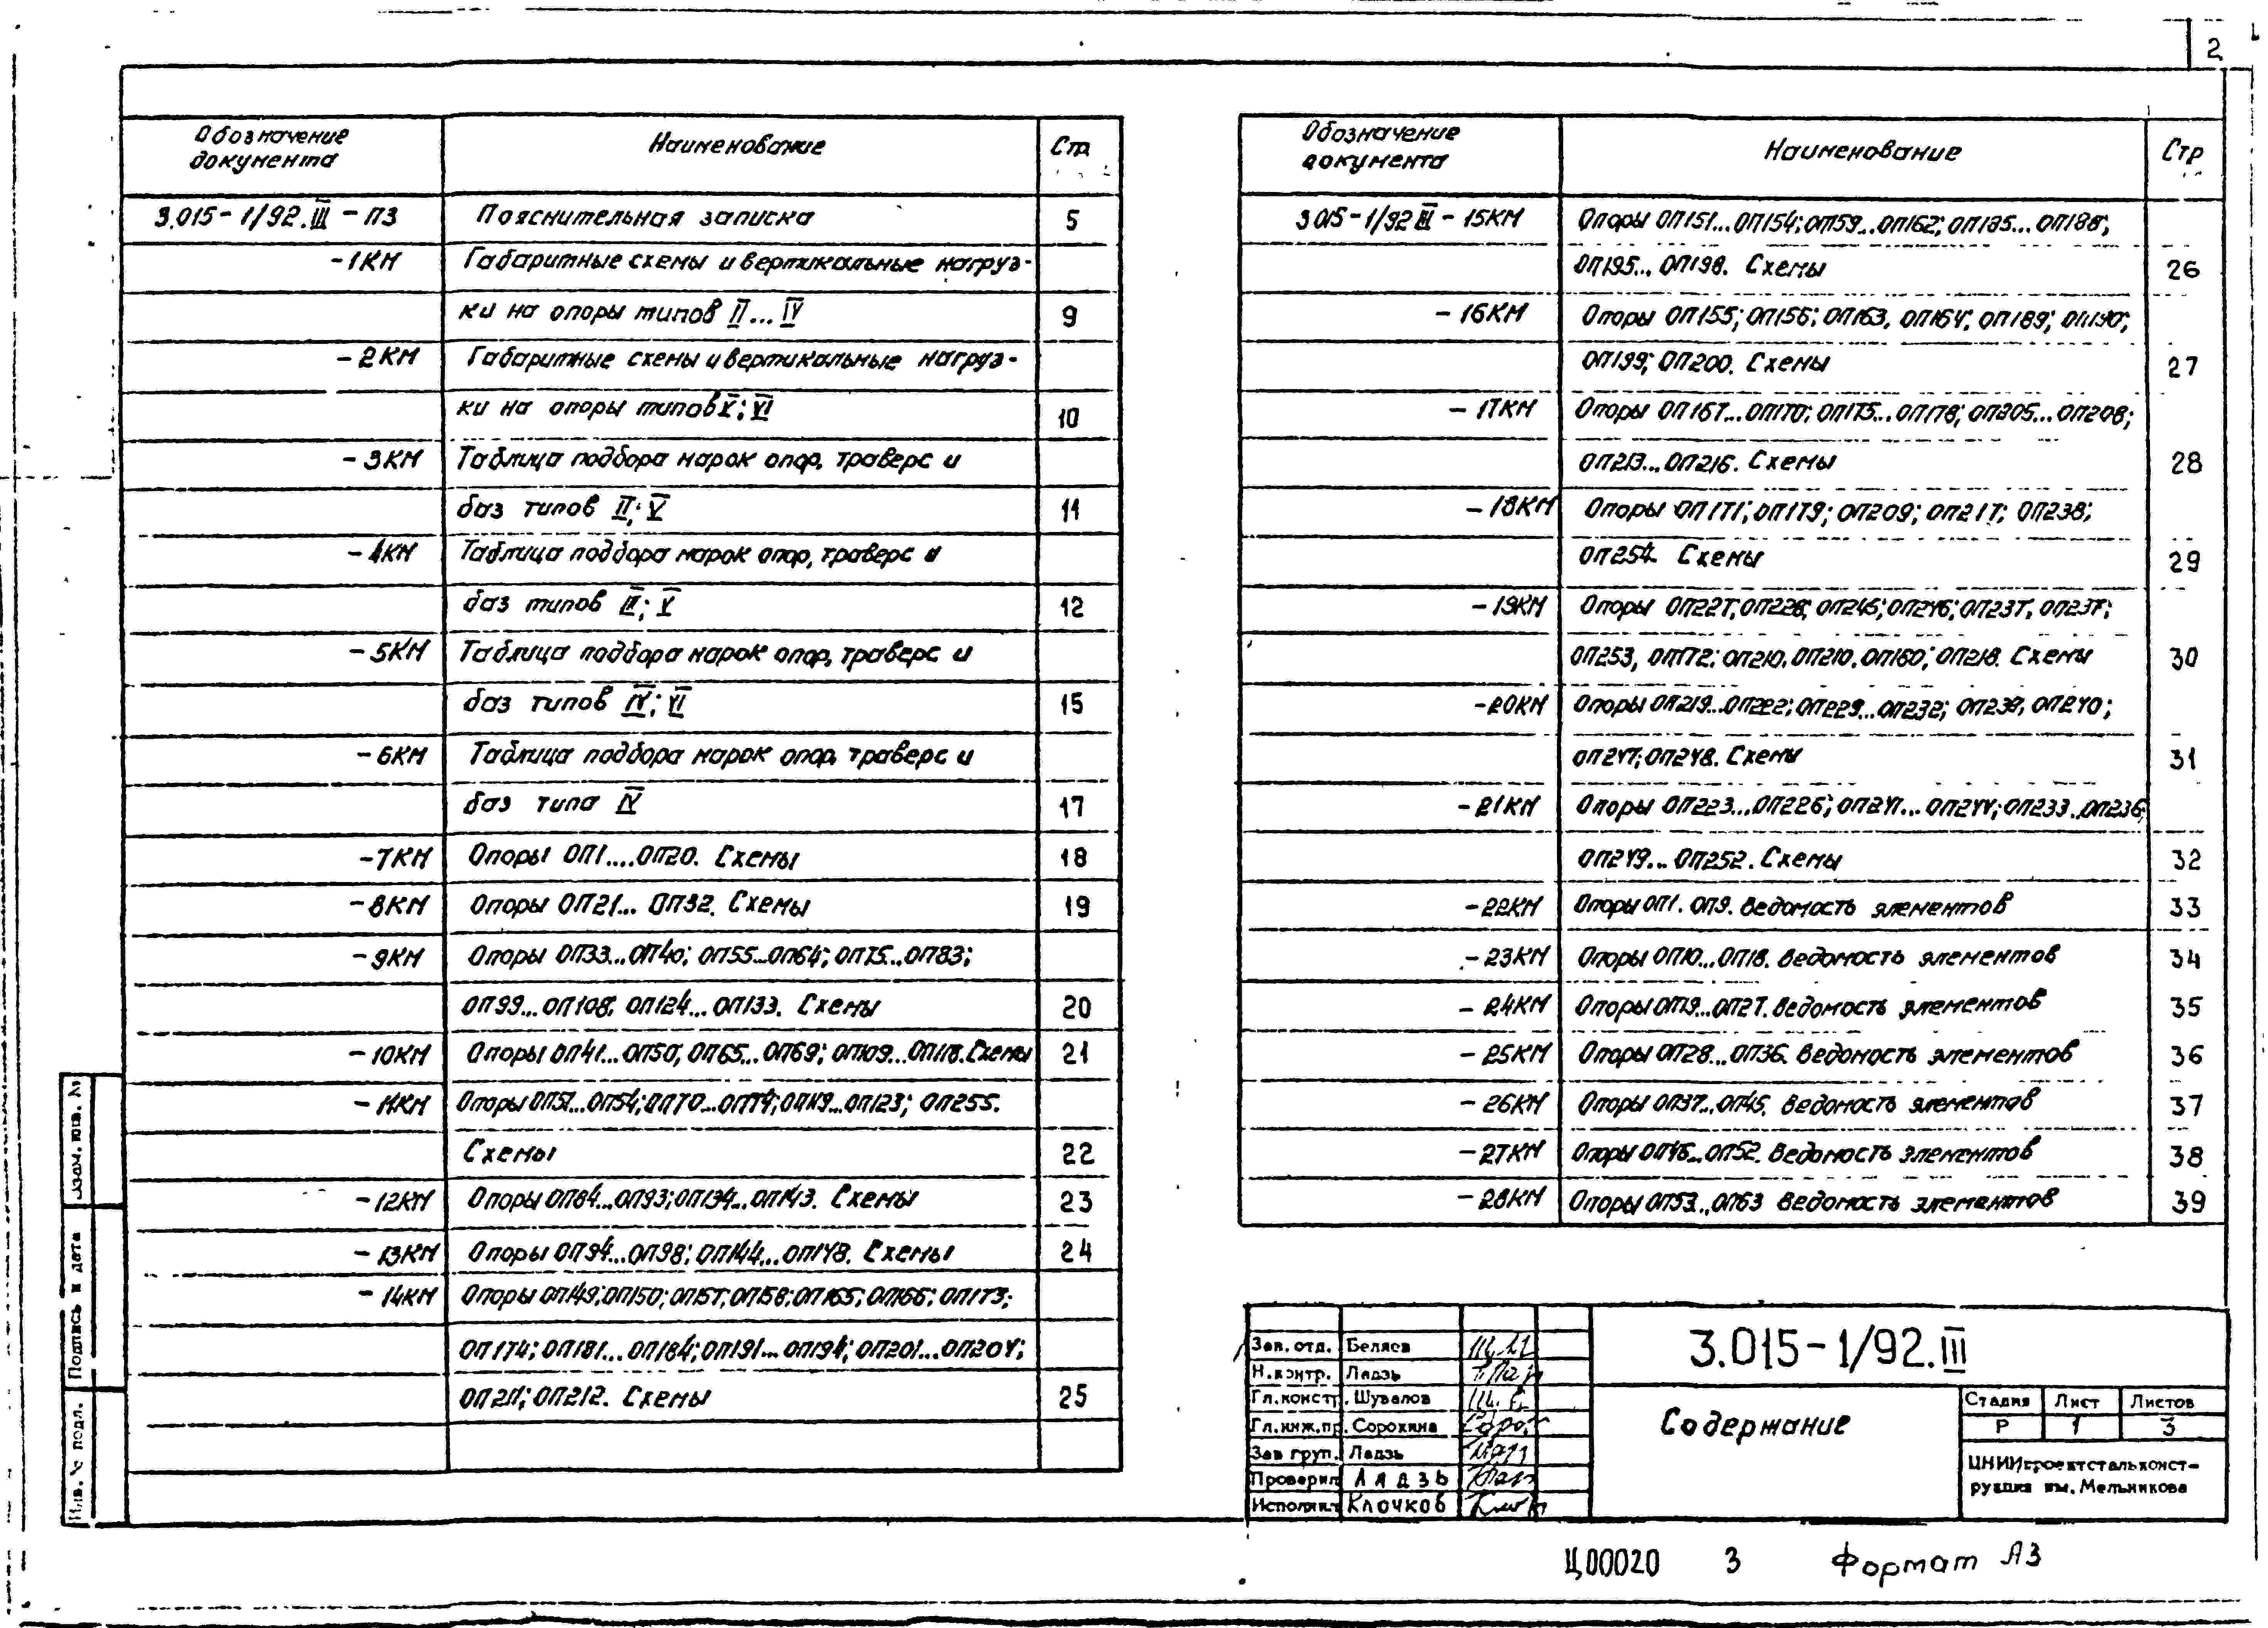 2
Обозначение документа Наименование Стр
3.015-1/92.III-ПЗ Пояснительная записка 5
-1КМ Габаритные схемы и вертикальные нагруз-
ки на опоры типов II...IV 9
-2КМ Габаритные схемы и вертикальные нагруз-
ки на опоры типов V; VI 10
-3КМ Таблица подбора марок опор, траверс и
баз типов II; V 11
-4КМ Таблица подбора марок опор, траверс и
баз типов III; V 12
-5КМ Таблица подбора марок опор, траверс и
баз типов IV; VI 15
-6КМ Таблица подбора марок опор, траверс и
баз типа IV 17
-7КМ Опоры ОП1....ОП20. Схемы 18
-8КМ Опоры ОП21... ОП32. Схемы 19
-9КМ Опоры ОП33...ОП40; ОП55...ОП64; ОП75...ОП83;
ОП99...ОП108; ОП124...ОП133. Схемы 20
-10КМ Опоры ОП41...ОП50; ОП65...ОП69; ОП109...ОП118. Схемы 21
-11КМ Опоры ОП51...ОП54; ОП70...ОП74; ОП119...ОП123; ОП255.
Схемы 22
-12КМ Опоры ОП84...ОП93; ОП134...ОП143. Схемы 23
-13КМ Опоры ОП94...ОП98; ОП144...ОП148. Схемы 24
-14КМ Опоры ОП149; ОП150; ОП157; ОП158; ОП165; ОП166; ОП173;
ОП174; ОП181...ОП184; ОП191...ОП194; ОП201...ОП204;
ОП211; ОП212. Схемы 25
Обозначение документа Наименование Стр
3.015-1/92 III-15КМ Опоры ОП151...ОП154; ОП159...ОП162; ОП185...ОП188;
ОП195... ОП198. Схемы 26
-16КМ Опоры ОП155; ОП156; ОП163, ОП164; ОП189; ОП190;
ОП199; ОП200. Схемы 27
-17КМ Опоры ОП167...ОП170; ОП175...ОП178; ОП205...ОП208;
ОП213...ОП216. Схемы 28
-18КМ Опоры ОП171; ОП179; ОП209; ОП217; ОП238;
ОП254. Схемы 29
-19КМ Опоры ОП227; ОП228; ОП245; ОП246; ОП237, ОП237;
ОП253, ОП172; ОП210, ОП210, ОП180; ОП218. Схемы 30
-20КМ Опоры ОП219...ОП222; ОП229...ОП232; ОП239, ОП240;
ОП247; ОП248. Схемы 31
-21КМ Опоры ОП223...ОП226; ОП241...ОП244; ОП233...ОП236;
ОП249... ОП252. Схемы 32
-22КМ Опоры ОП1. ОП9. Ведомость элементов 33
-23КМ Опоры ОП10...ОП18. Ведомость элементов 34
-24КМ Опоры ОП19...ОП27. Ведомость элементов 35
-25КМ Опоры ОП28...ОП36. Ведомость элементов 36
-26КМ Опоры ОП37...ОП45. Ведомость элементов 37
-27КМ Опоры ОП46...ОП52. Ведомость элементов 38
-28КМ Опоры ОП53...ОП63 Ведомость элементов 39
Взам. инв. №
Подпись и дата
Инв. № подл.
3.015-1/92.III
Зав. отд. Беляев
Н.контр. Лядзь
Гл.констр. Шувалов
Гл.инж.пр. Сорокина
Зав груп. Лядзь
Проверил Лядзь
Исполнил Клочков
Содержание
Стадия Лист Листов
Р 1 3
ЦНИИпроектстальконст-
рукция им. Мельникова
Ц00020 3 Формат А3